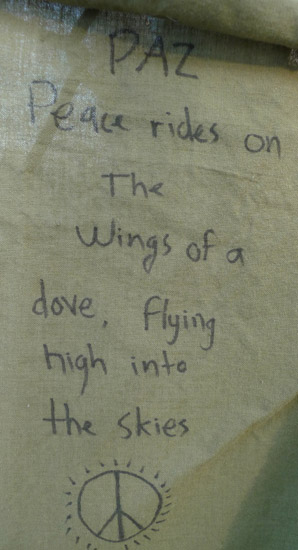 PAZ
Peace rides on
The
Wings of a
dove, flying
high into
the skies